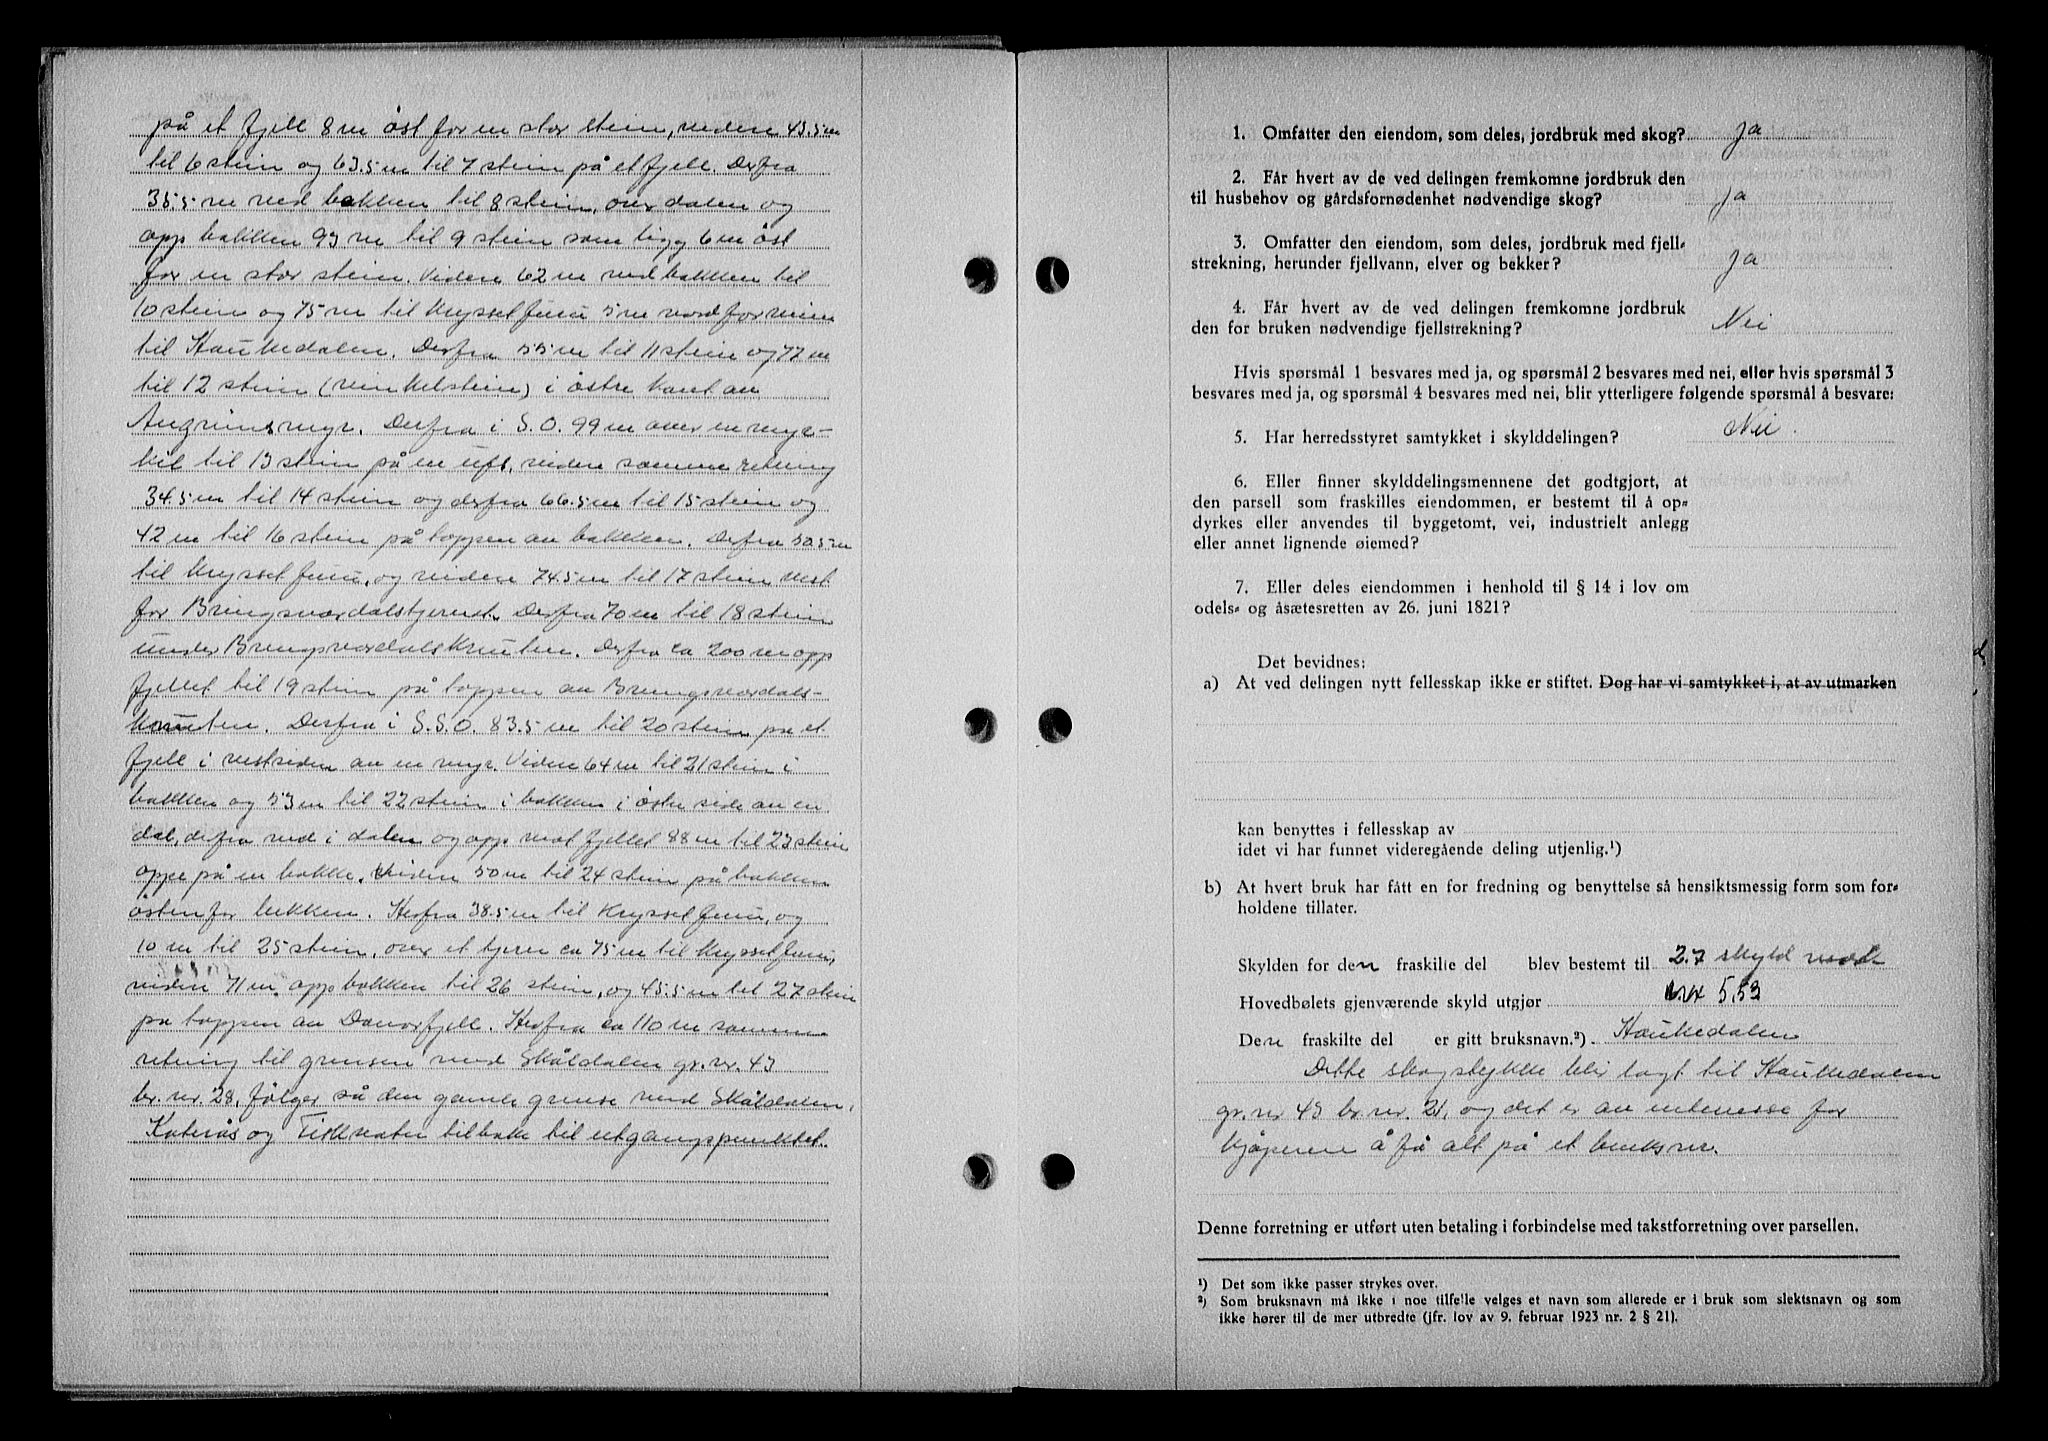 på et fjell 8 m öst for en stor stein, videre 43.5 m
til 6 stein og 63.5 m til 7 stein på et fjell. Derfra
35.5 m ned bakken til 8 stein, over dalen og
opp bakken 93 m til 9 stein som ligg 6 m öst
for en stor stein. Videre 62 m ned bakken til
10 stein og 75 m til Krysset furu 5 m nord for veien
til Haukedalen. Derfra 55 m til 11 stein og 77 m
til 12 stein (vinkelstein) i östre kant av
Angrimsmyr. Derfra i S.O. 99 m over en myr-
kil til 13 stein på en uft, videre samme retning
34.5 m til 14 stein og derfra 66.5 m til 15 stein og
42 m til 16 stein på toppen av bakken. Derfra 50.5 m
til Krysset furu, og videre 74.5 m til 17 stein vest
for Bringsværdalstjernet. Derfra 70 m til 18 stein
under Bringsværdalsknuten. Derfra ca 200 m opp
fjellet til 19 stein på toppen av Bringsværdals-
knuten. Derfra i S.S.O. 83.5 m til 20 stein på et
fjell i vestsiden av en myr. Videre 64 m til 21 stein i
bakken og 53 m til 22 stein i bakken i östre side av en
dal, derfra ned i dalen og opp mot fjellet 88 m til 23 stein
oppe på en bakke. Videre 50 m til 24 stein på bakken
östenfor bekken. Herfra 38.5 m til Krysset furu, og
10 m til 25 stein, over et tjern ca 75 m til Krysset furu,
videre 71 m opp bakken til 26 stein, og 45.5 m til 27 stein
på toppen av Danorfjell. Herfra ca 110 m samme
retning til grensen med Skåldalen gr. nr. 43
br. nr. 28, følger så den gamle grense med Skåldalen,
Katerås og Fiskvatn tilbake til utgangspunktet.
1. Omfatter den eiendom, som deles, jordbruk med skog? Ja
2. Får hvert av de ved delingen fremkomne jordbruk den
til husbehov og gårdsfornødenhet nødvendige skog? Ja
3. Omfatter den eiendom, som deles, jordbruk med fjell-
strekning, herunder fjellvann, elver og bekker? Ja
4. Får hvert av de ved delingen fremkomne jordbruk
den for bruken nødvendige fjellstrekning? Nei
Hvis spørsmål 1 besvares med ja, og spørsmål 2 besvares med nei, eller hvis spørsmål 3
besvares med ja, og spørsmål 4 besvares med nei, blir ytterligere følgende spørsmål å besvare:
5. Har herredsstyret samtykket i skylddelingen? Nei.
6. Eller finner skylddelingsmennene det godtgjort, at
den parsell som fraskilles eiendommen, er bestemt til å op-
dyrkes eller anvendes til byggetomt, vei, industrielt anlegg
eller annet lignende øiemed?
7. Eller deles eiendommen i henhold til § 14 i lov om
odels- og åsætesretten av 26. juni 1821?
Det bevidnes:
a) At ved delingen nytt fellesskap ikke er stiftet. Dog har vi samtykket i, at av utmarken
kan benyttes i fellesskap av
idet vi har funnet videregående deling utjenlig.¹)
b) At hvert bruk har fått en for fredning og benyttelse så hensiktsmessig form som for-
holdene tillater.
Skylden for den fraskilte del blev bestemt til 2.7 skyld mark
Hovedbølets gjenværende skyld utgjør mrk 5.53
Den fraskilte del er gitt bruksnavn.²) Haukedalen
Dette skogstykke blir lagt til Haukedalen
gr. nr. 43 br. nr. 21, og det er av interesse for
kjøperne å få alt på et bruksnr.
Denne forretning er utført uten betaling i forbindelse med takstforretning over parsellen.
¹) Det som ikke passer strykes over.
²) Som bruksnavn må ikke i noe tilfelle velges et navn som allerede er i bruk som slektsnavn og som
ikke hører til de mer utbredte (jfr. lov av 9. februar 1923 nr. 2 § 21).